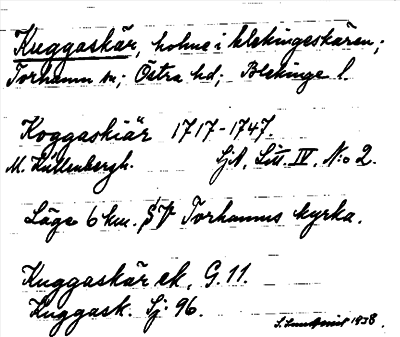 Kuggaskär, holme i blekingeskären;
Torhamn sn; Östra hd; Blekinge l.
Koggaskiär 1717-1747.
M. Küllenbergh. SjA. Litt. IV. N:o 2.
Läge 6 km. SV Torhamns kyrka.
Kuggaskär ek. G. 11.
Kuggask. Sj: 96.
1938.